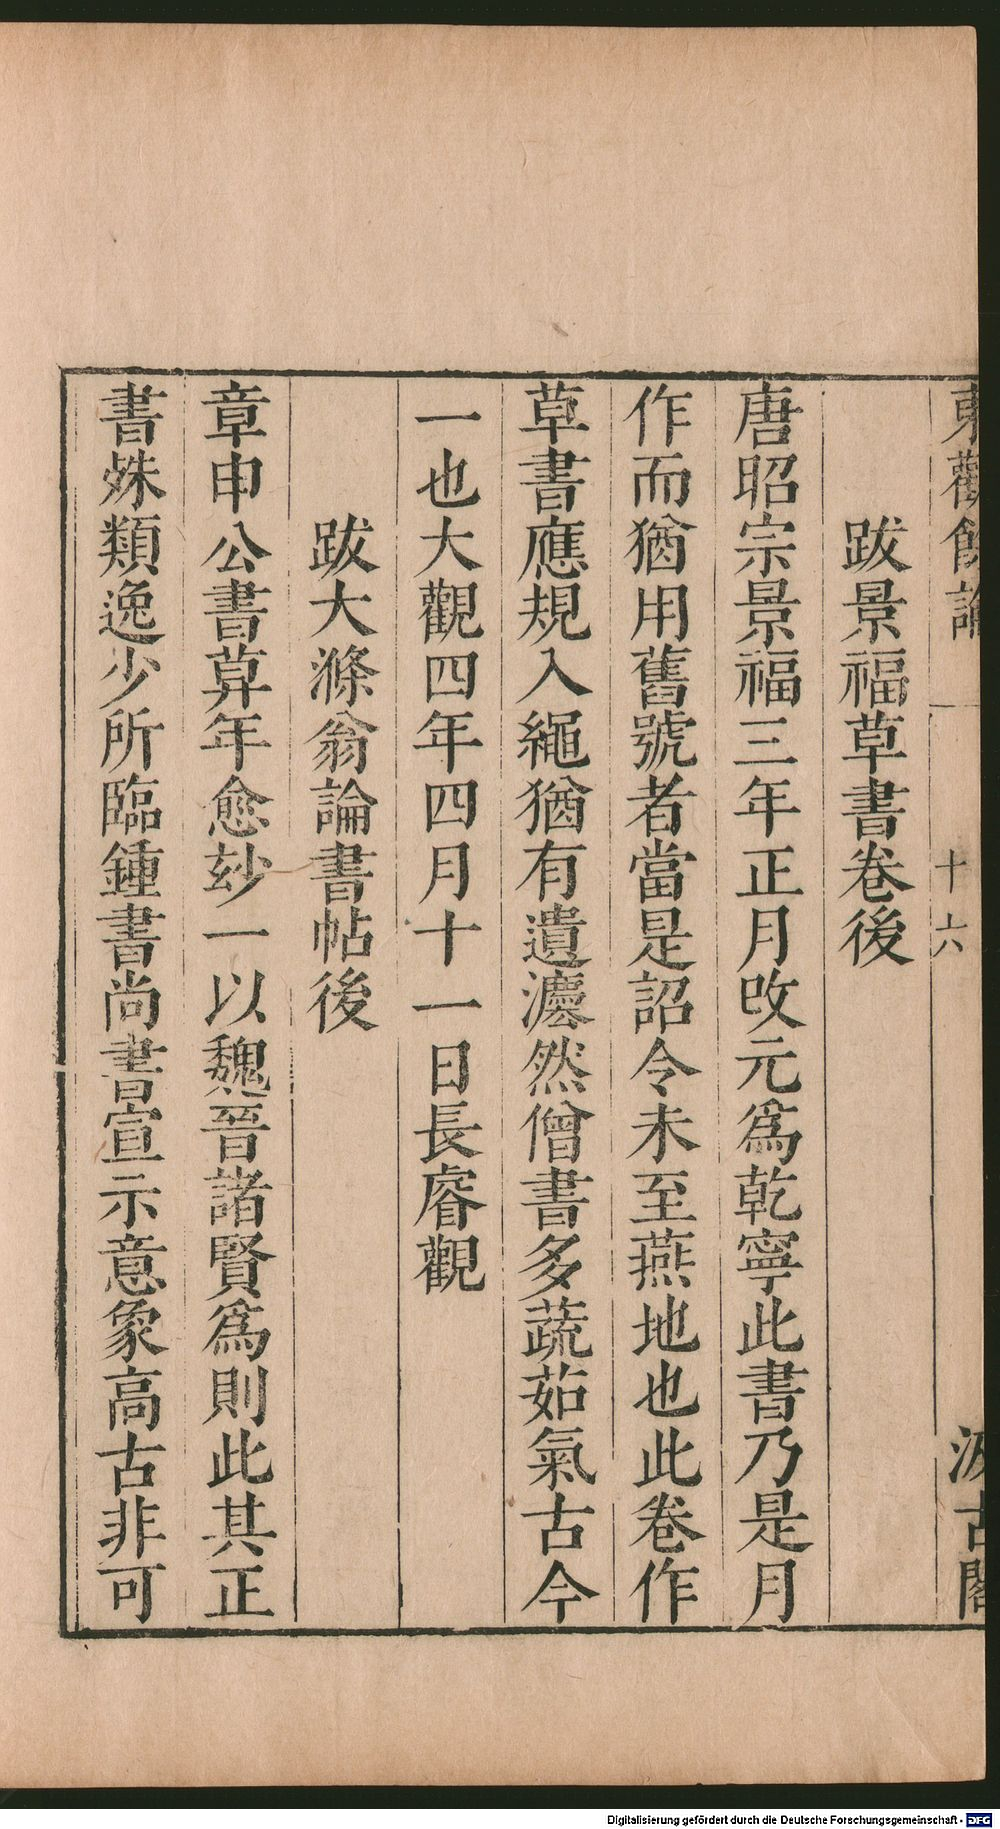 東觀餘論 十六 汲古閣
跋景福草書卷後
唐昭宗景福三年正月改元爲乾寧此書乃是月
作而猶用舊號者當是詔令未至燕地也此卷作
草書應規入繩猶有遺灋然僧書多蔬茹氣古今
一也大觀四年四月十一日長睿觀
跋大滌翁論書帖後
章申公書筭年愈玅一以魏晉諸賢爲則此其正
書殊類逸少所臨鍾書尚書宣示意象高古非可
Digitalisierung gefördert durch die Deutsche Forschungsgemeinschaft - DFG